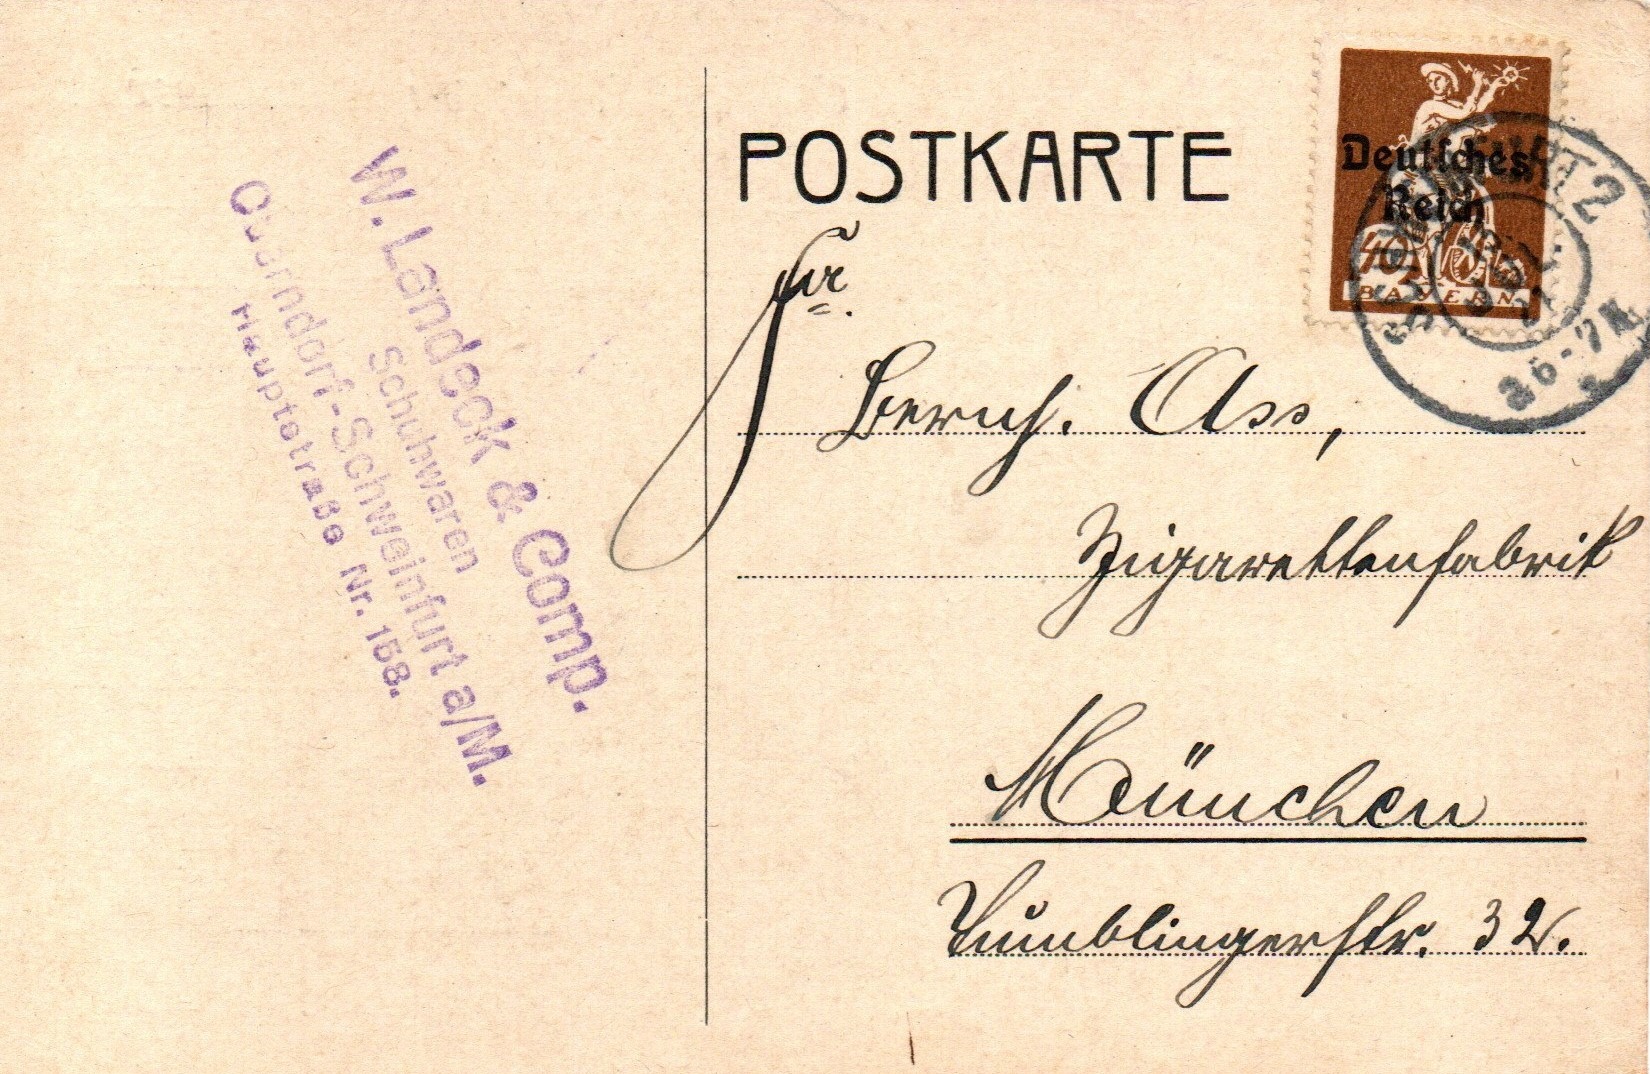 W. Landeck & Comp.
Schuhwaren
Oberndorf-Schweinfurt a/M.
Hauptstraße Nr. 158.
POSTKARTE
Deutsches
Reich
40
BAYERN
2
6-7N
Fa.
Bernh. Ass,
Zigarettenfabrik
München
Tumblingerstr. 32.